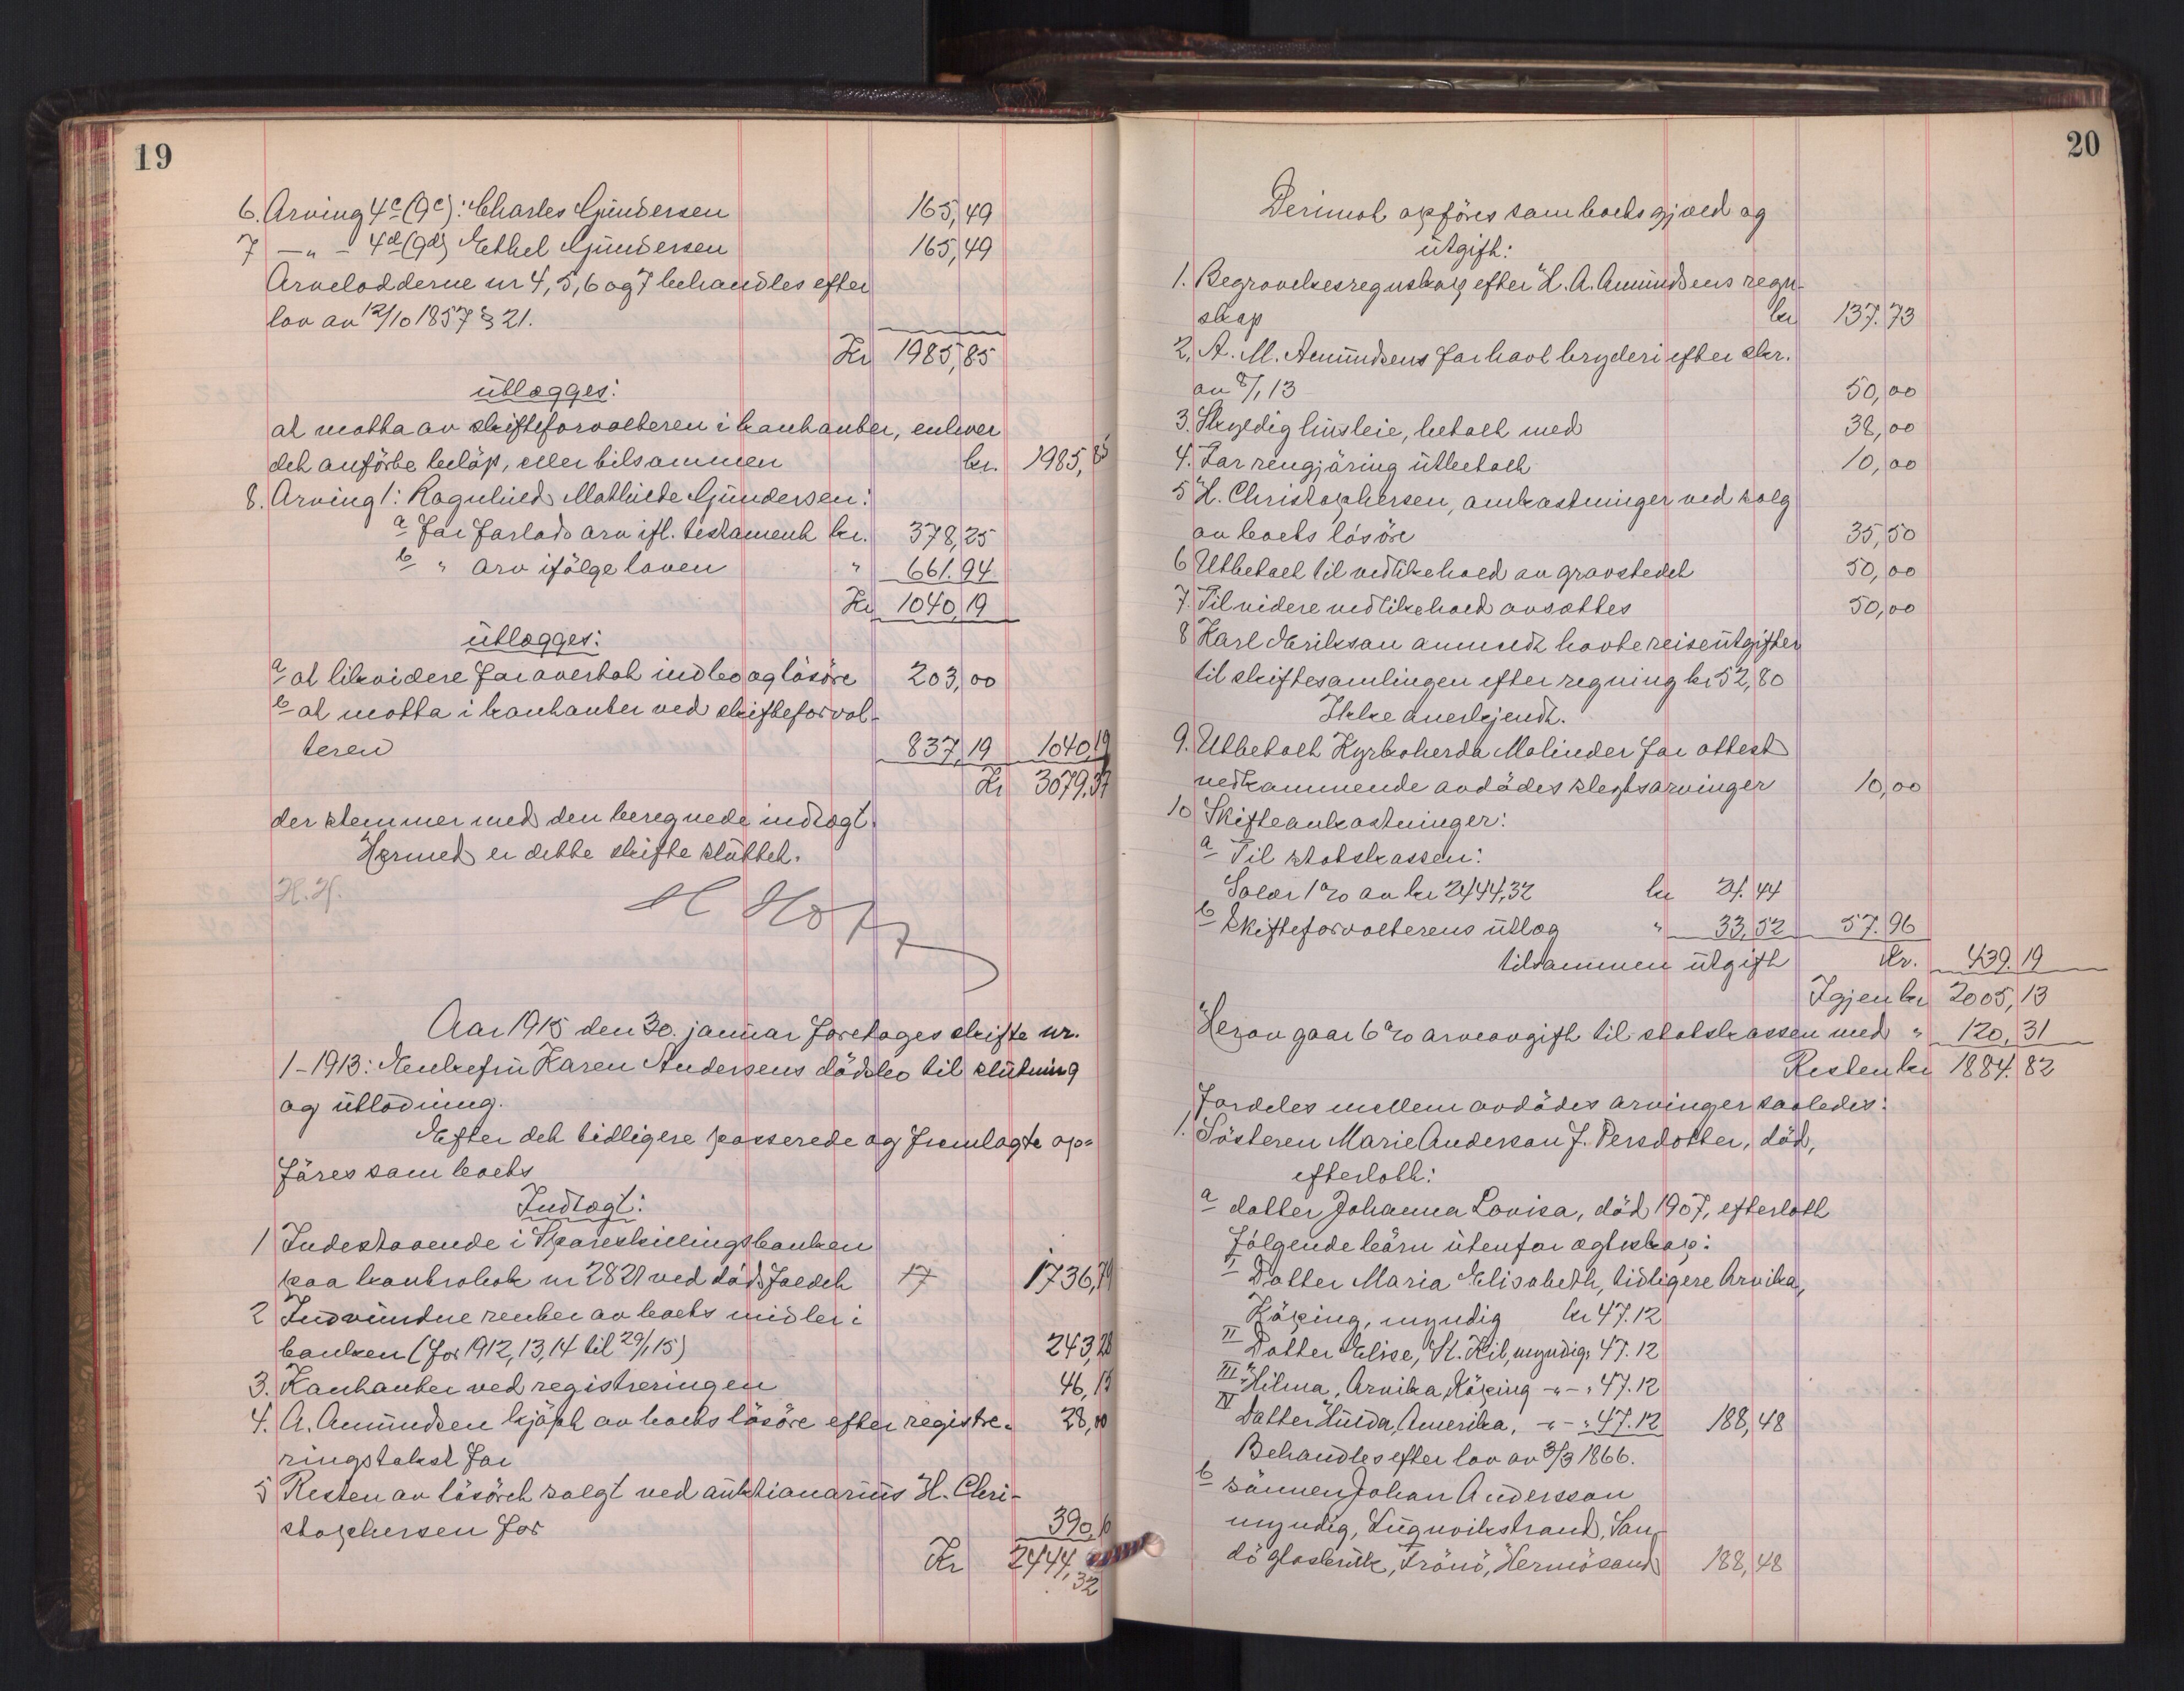 19
6. Arving 4c (9c): Charles Gundersen 165,49
7 —„— 4d (9d) Ethel Gundersen 165,49
Arvelodderne nr 4, 5, 6 og 7 behandles efter
lov av 12/10 1857 § 21.
Kr 1985,85
utlægges:
at motta av skifteforvalteren i kontanter, enhver
det anførte beløp, eller tilsammen kr. 1985,85
8. Arving 1: Ragnhild Mathilde Gundersen:
a For forlods arv ifl. testament kr. 378,25
b „ arv ifølge loven „ 661.94
Kr 1040,19
utlægges:
a at likvidere for overtat indbo og løsøre 203,00
b at motta i kontanter ved skifteforval-
teren 837,19 1040,19
Kr 3079.37
der stemmer med den beregnede indtægt.
Hermed er dette skifte sluttet.
H. H.
Aar 1915 den 30. januar foretages skifte nr.
1-1913: Enkefru Karen Andersens dødsbo til slutning
og utlodning.
Efter det tidligere passerede og fremlagte op-
føres som boets
Indtægt:
1 Indestaaende i Spareskillingsbanken
paa kontrabok nr 2821 ved dødsfaldet 17 1736,79
2 Indvundne renter av boets midler i
banken (for 1912, 13, 14 til 29/1 15) 243,28
3. Kontanter ved registreringen 46,15
4. A. Amundsen kjøpt av boets løsøre efter registre- 28,00
ringstakst for
5 Resten av løsøret solgt ved auktionarius H. Chri-
stophersen for 390,10
Kr 2444,32
20
Derimot opføres som boets gjæld og
utgift:
1. Begravelsesregnskap efter H. A. Amundsens regn-
skap kr 137.73
2. A. M. Amundsens for havt bryderi efter skr.
av 8/1 13 50,00
3. Skyldig husleie, betalt med 38,00
4. For rengjøring utbetalt 10,00
5 H. Christophersen, omkostninger ved salg
av boets løsøre 35,50
6 Utbetalt til vedlikehold av gravstedet 50,00
7. Til videre vedlikehold avsættes 50,00
8 Karl Eriksson anmeldt havte reiseutgifter
til skiftesamlingen efter regning kr 52,80
Ikke anerkjendt.
9. Utbetalt Kyrkoherda Molinder for attest
vedkommende avdødes slegtsarvinger 10,00
10 Skifteomkostninger:
a Til statskassen:
Salær 1% av kr 2444,32 kr 24.44
b Skifteforvalterens utlæg „ 33,52 57.96
tilsammen utgift kr. 439.19
Igjen kr 2005,13
Herav gaar 6% arveavgift til statskassen med „ 120,31
Resten kr 1884.82
fordeles mellem avdødes arvinger saaledes:
1. Søsteren Marie Anderson f. Persdotter, død,
efterlatt:
a datter Johanna Lovisa, død 1907, efterlatt
følgende børn utenfor egteskap:
I Datter Maria Elisabeth, tidligere Arvika,
Køping, myndig kr 47.12
II Datter Elise, St. Kil, myndig „ 47.12
III Hilma, Arvika, Køping —„— „ 47.12
IV Datter Hulda, Amerika, —„— „ 47.12 188,48
Behandles efter lov av 3/3 1866.
b sønnen Johan Andersson
myndig, Lugnvikstrand, San-
dø glasbruk, Frånö, Hernösand 188,48